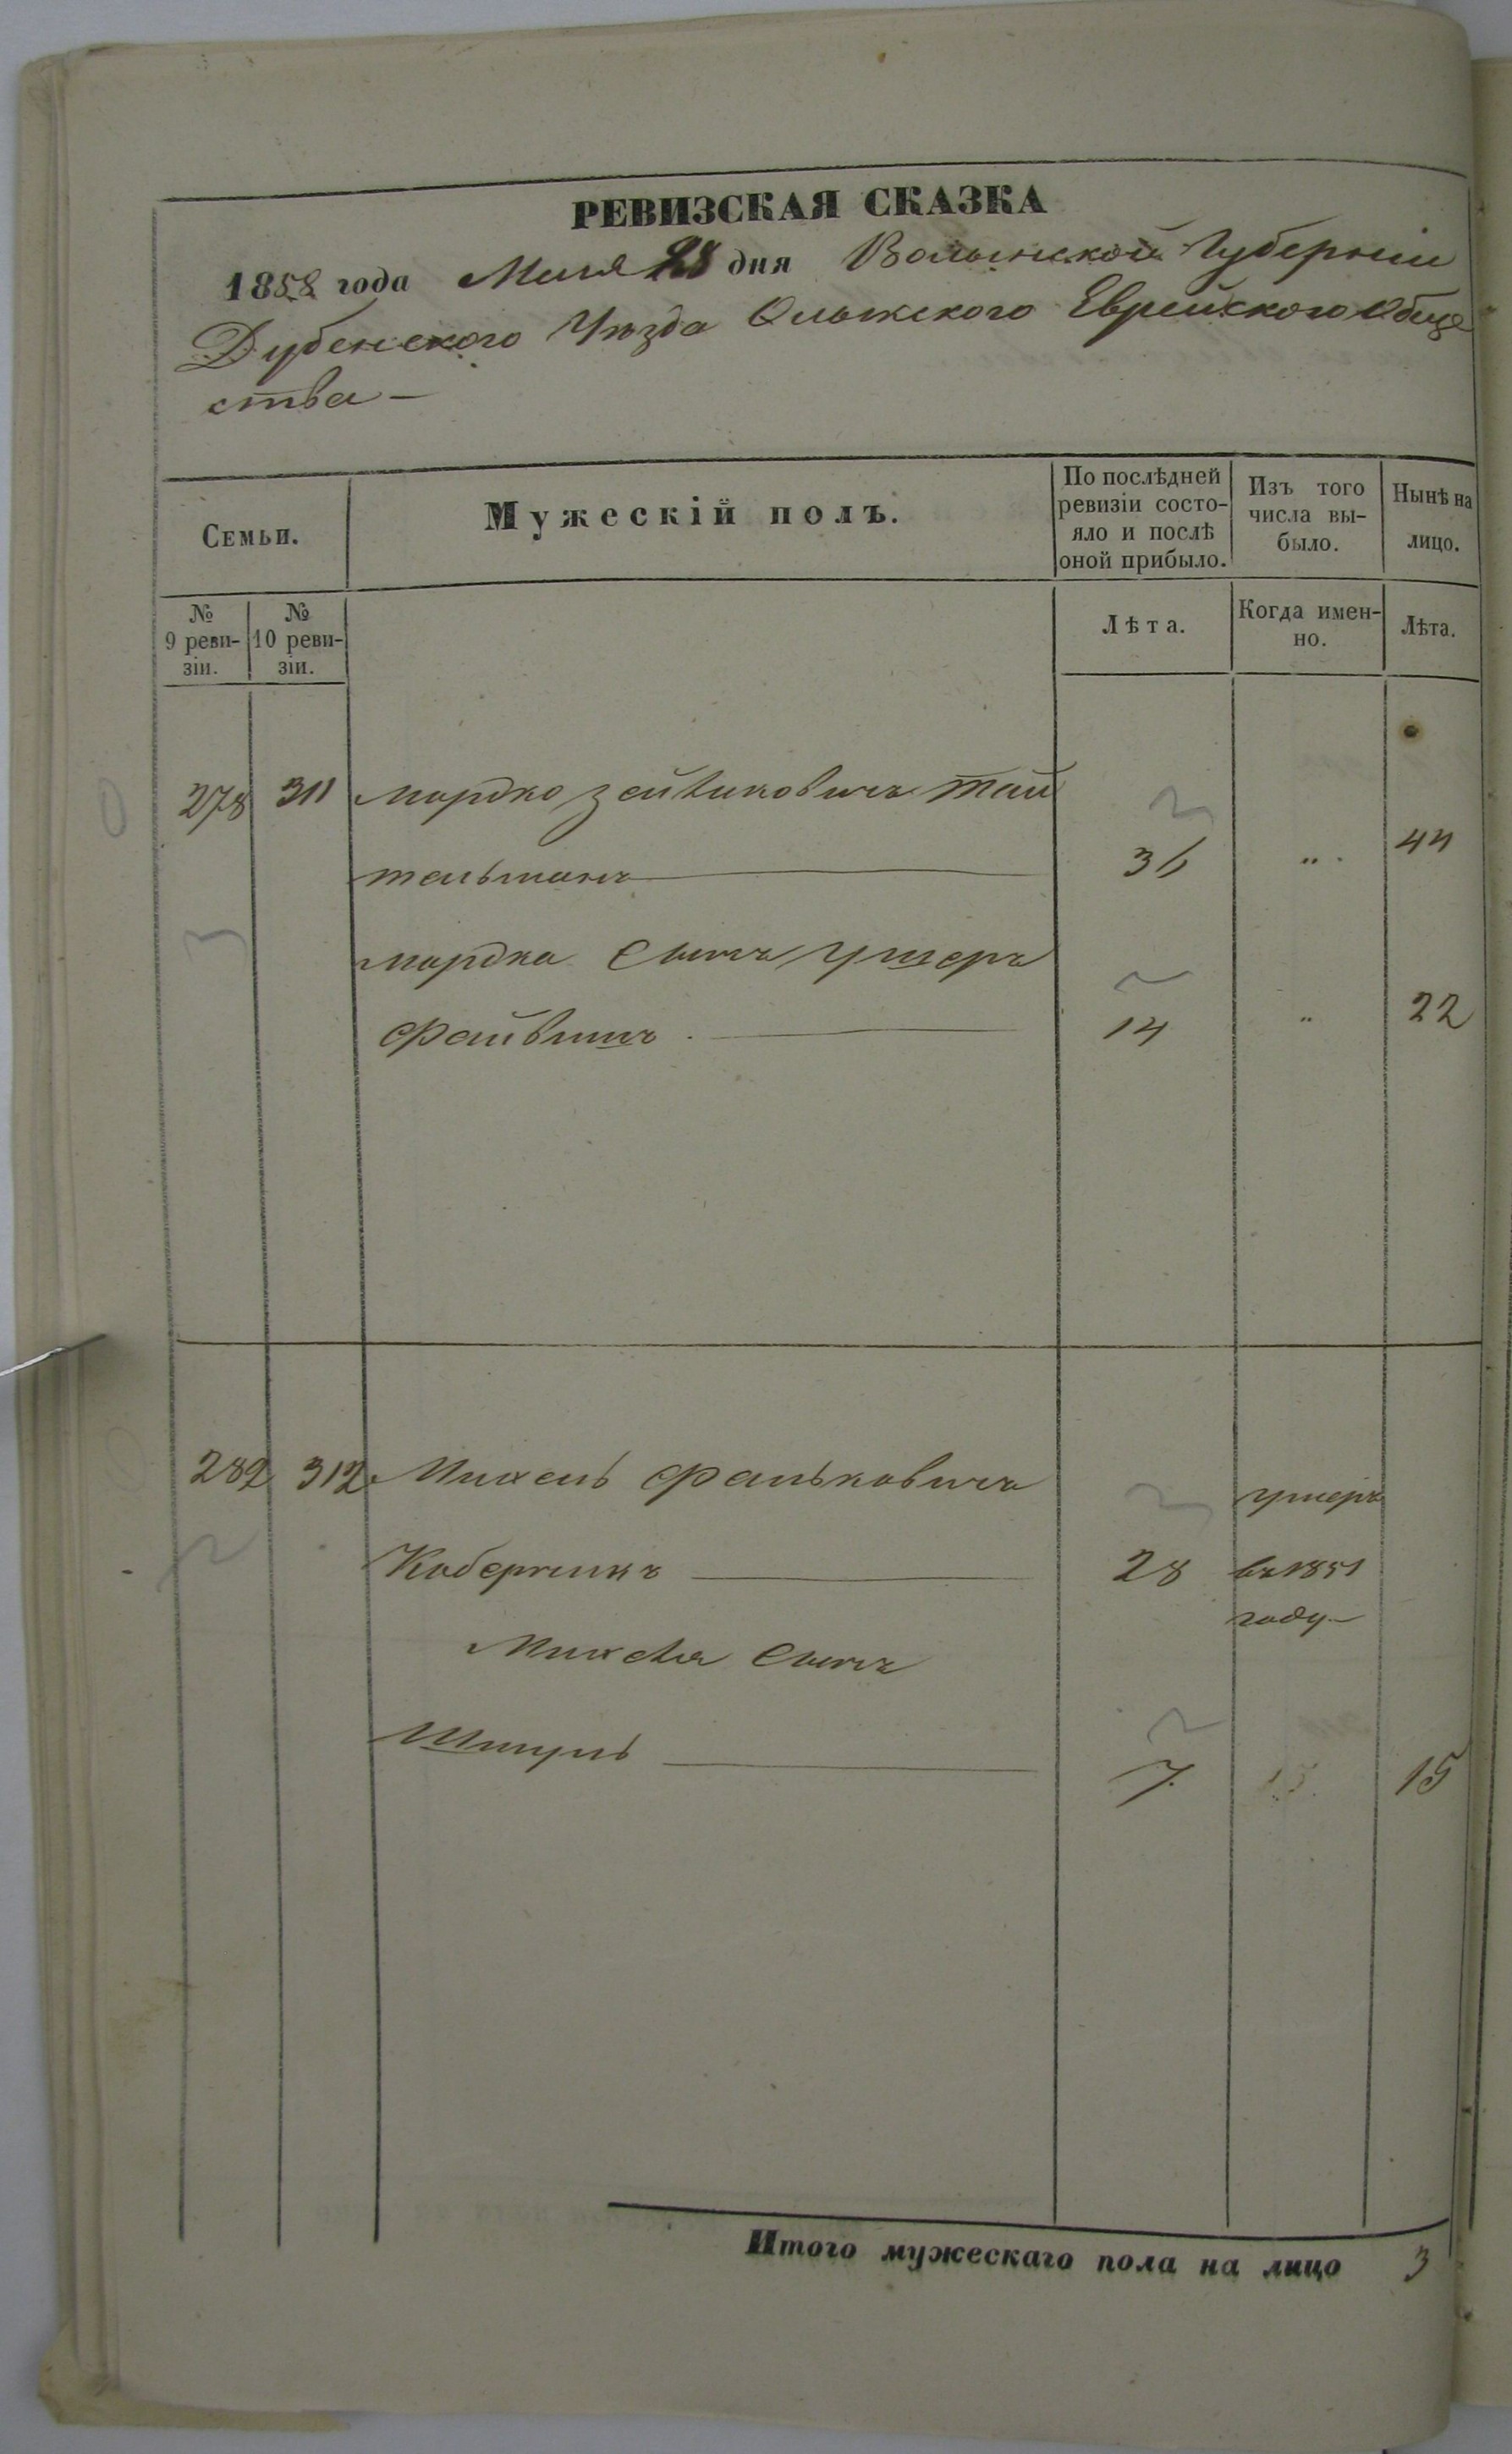 РЕВИЗСКАЯ СКАЗКА
1858 года Маія 28 дня Волынской Губерніи
Дубенского Уѣзда Олыкского Еврейского Обще
ства –
Семьи.
Мужескій полъ.
По послѣдней
ревизіи состо-
яло и послѣ
оной прибыло.
Изъ того
числа вы-
было.
Нынѣ на
лицо.
№
9 реви-
зіи.
№
10 реви-
зіи.
Лѣта.
Когда имен-
но.
Лѣта.
278 311 Мордко Зейликовичъ Тай
тельманъ 36 „ 44
Мордка Сынъ Ушеръ
Файвишъ 14 „ 22
282 312 Михель Фальковичъ умеръ
28 въ 1851
году
Михеля Сынъ
Шмуль 7 15
Итого мужескаго пола на лицо 3